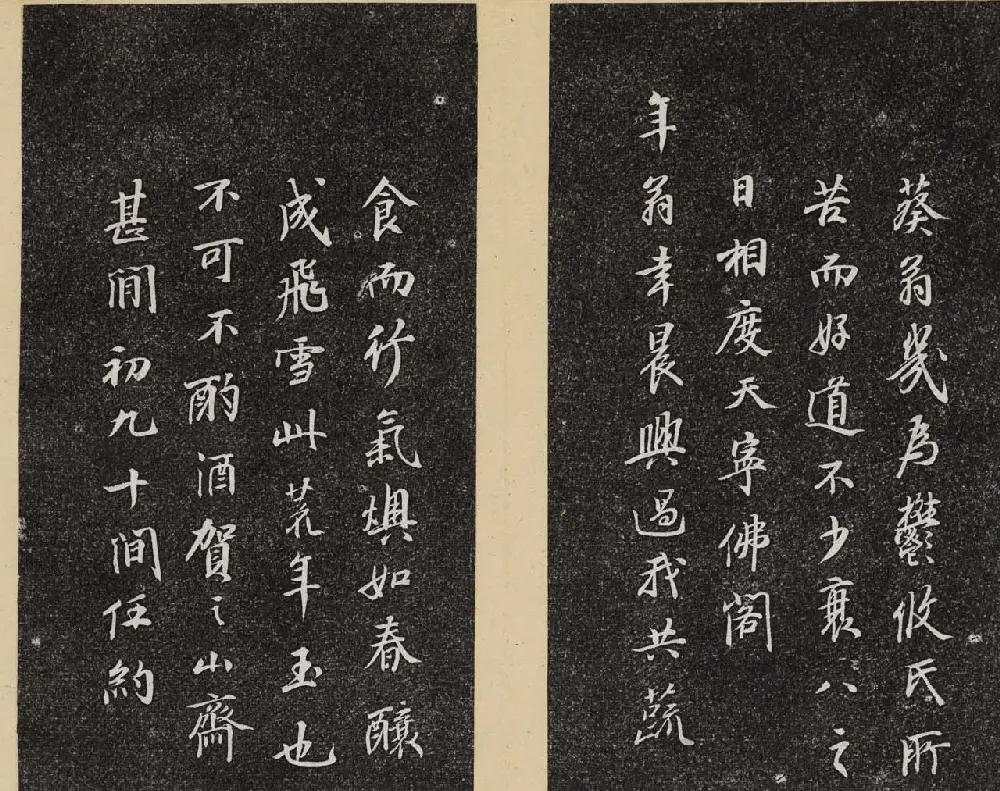 葵翁幾為鬱攸氏所
苦而好道不少衰八之
日相度天寧佛閣
年翁幸晨興過我共蔬
食而行氣燠如春釀
成飛雪此荒年玉也
不可不酌酒賀之山齋
甚閒初九十間任約